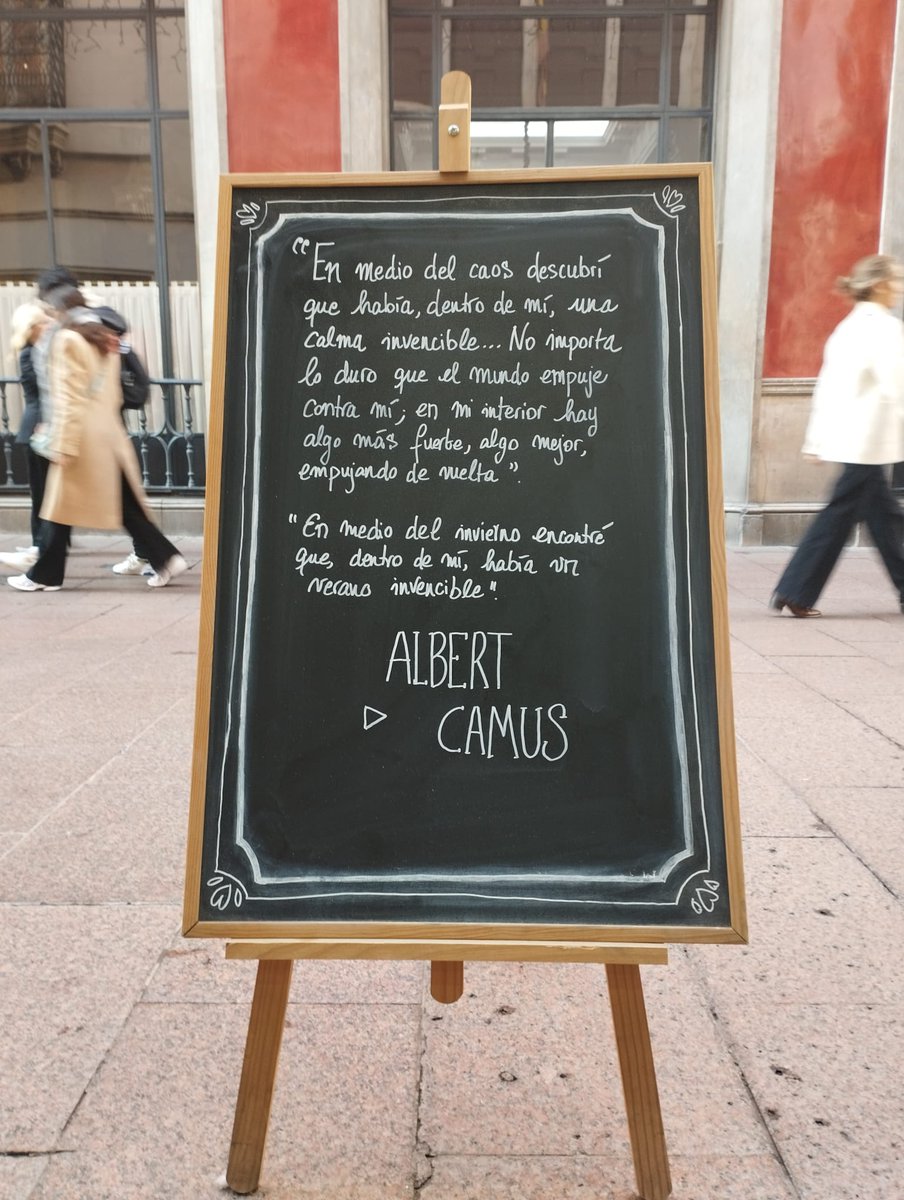 “En medio del caos descubrí
que había, dentro de mí, una
calma invencible... No importa
lo duro que el mundo empuje
contra mí; en mi interior hay
algo más fuerte, algo mejor,
empujando de vuelta”.
"En medio del invierno encontré
que, dentro de mí, había un
verano invencible".
ALBERT
CAMUS